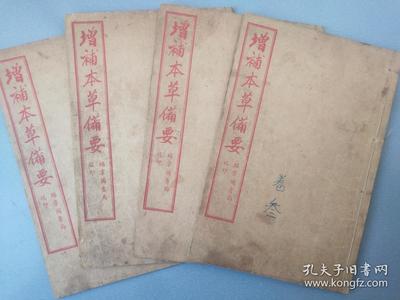 增補本草備要
增補本草備要
增補本草備要
增補本草備要
卷叁
孔夫子旧书网
www.kongfz.com